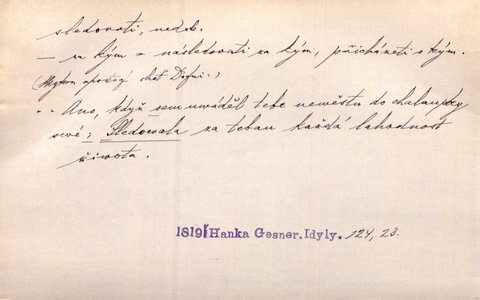 sledovati, nedok.
— za kým = následovati za kým, přicházeti s kým.
(Mykon opouští choť Dafni.)
.. Ano, když sem uwáděl tebe newěstu do chalaupky
swé; Sledowala za tebau každá lahodnost
žiwota.
1819 Hanka Gesner. Idyly. 124, 23.